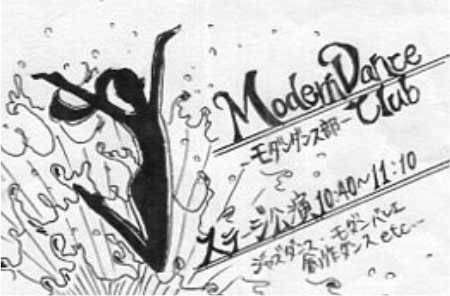 Modern Dance
Club
－モダンダンス部－
ステージ公演 10:40～11:10
ジャズダンス、モダンバレエ
創作ダンス etc...